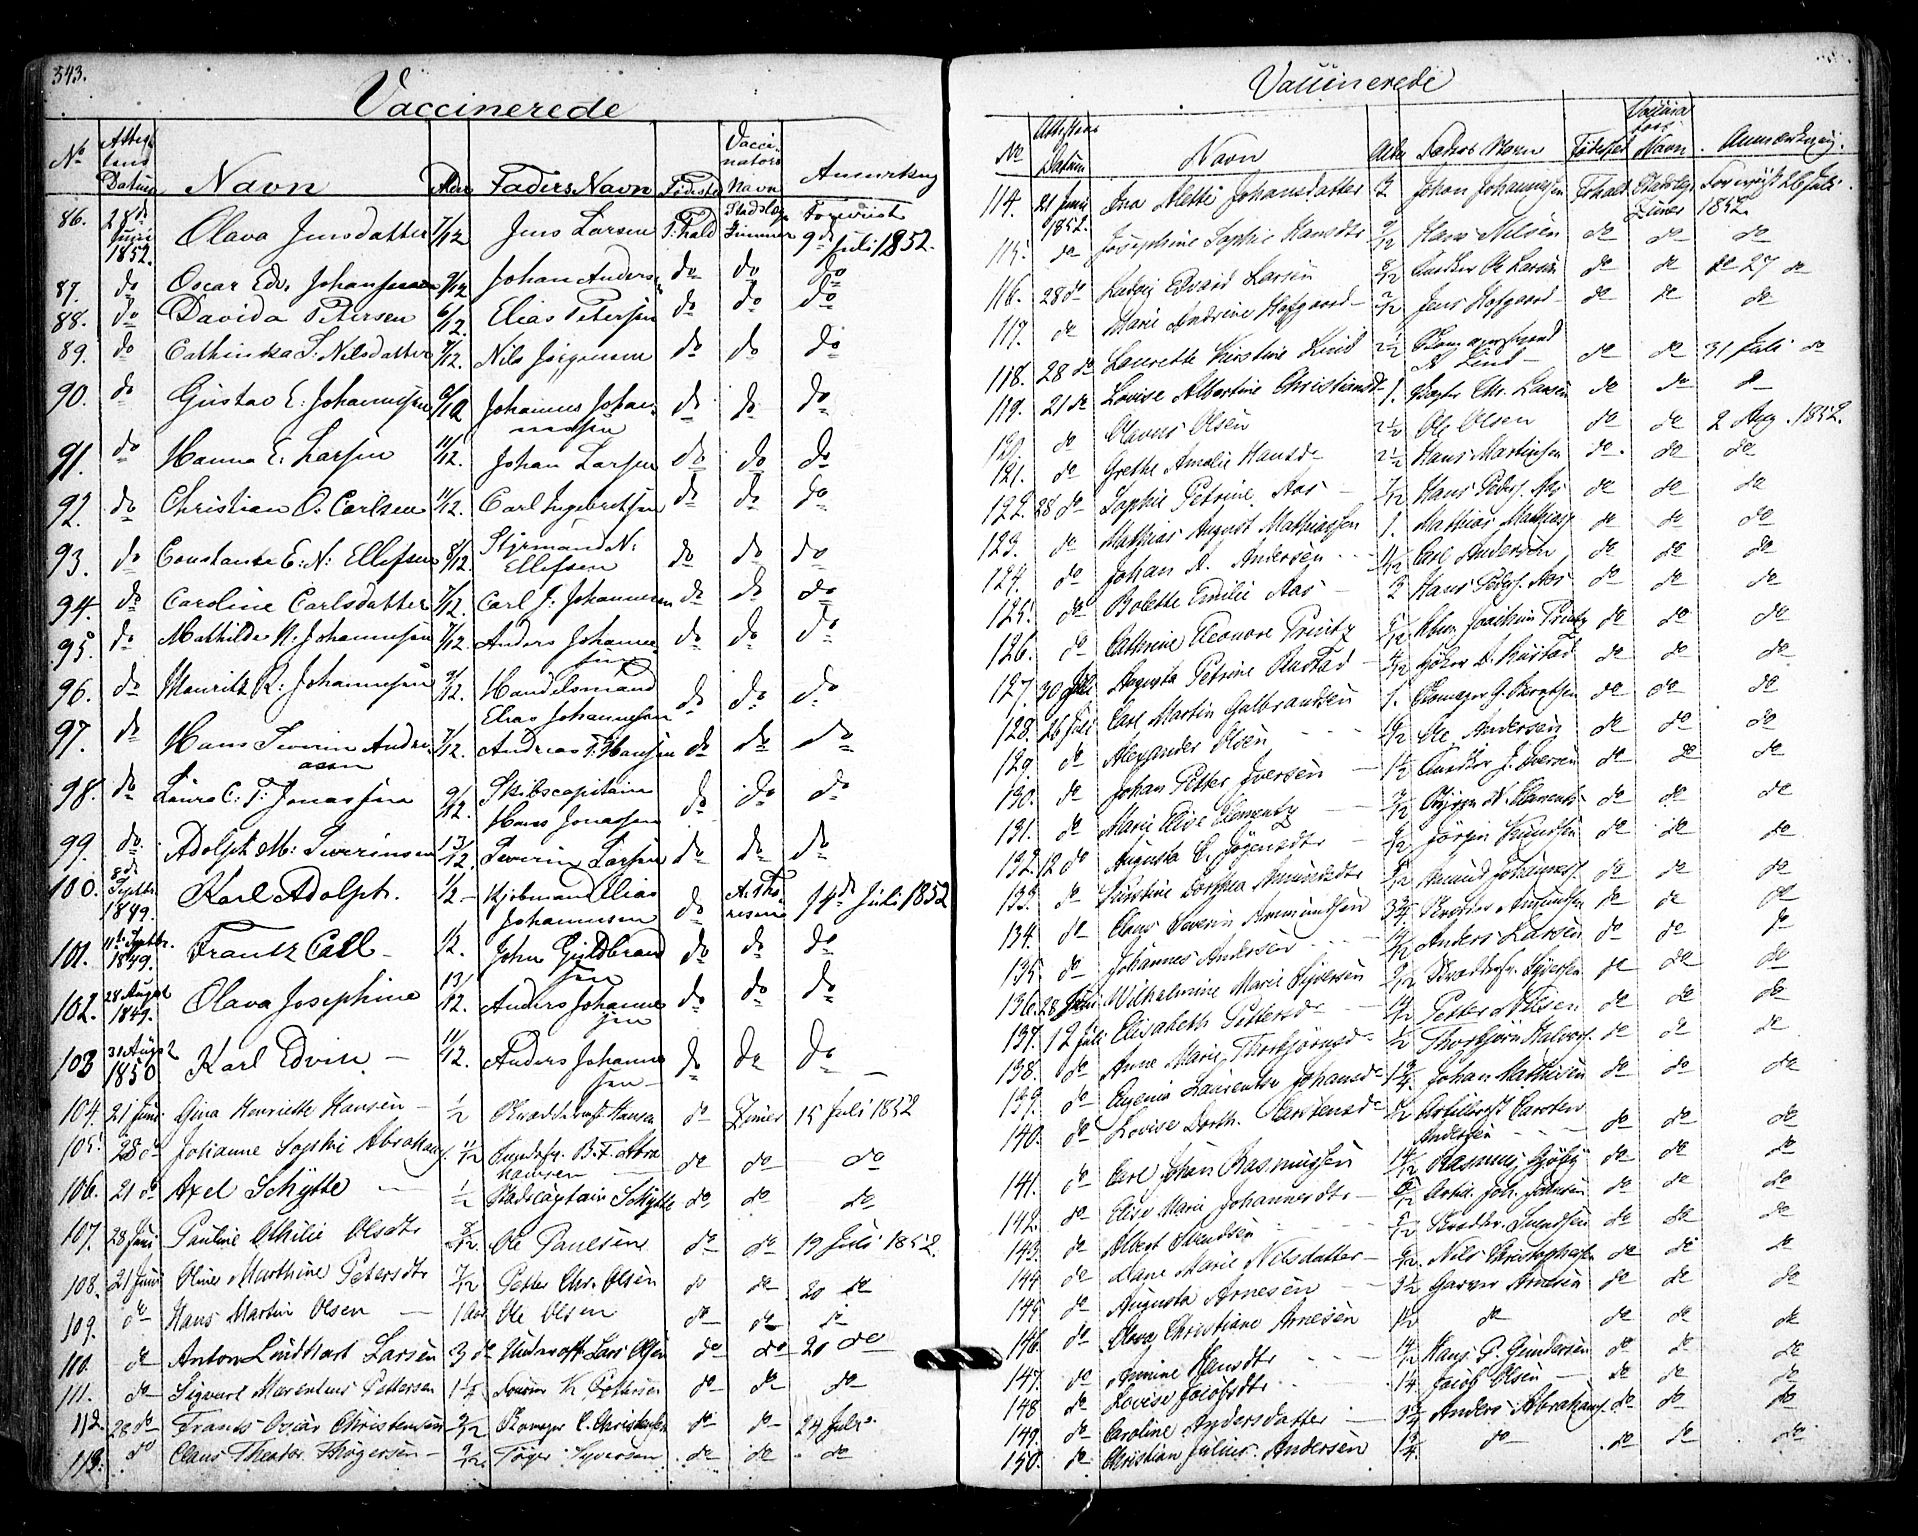 343.
Vaccinerede
No Attes tens Datum Navn Alder Faders Navn Fødested Vacci natørs Navn Anmerkning
86. 28de Juni 1852. Olava Jensdatter 7/12 Jens Larsen F:hald Stadslæge Zimmer Forevist 9de Juli 1852.
87. do Oscar Edv. Johannsen 9/12 Johan Anders. do do do
88. do Davida Petersen 6/12. Elias Petersen do do do
89. do Cathinka S. Nilsdatter 7/12. Nils Jørgensen do do do
90. do Gustav E. Johannesen Johannes Johan nesen do do do
91. do Hanna E. Larsen 11/12. Johan Larsen do do do
92. do Christian O. Carlsen 11/12. Carl Ingebretsen do do do
93. do Constance E: N: Ellefsen 8/12 Styrmand N: Ellefsen do do do
94. do Caroline Carlsdatter 7/12. Carl J: Johannesen do do do
95. do Mathilde M. Johannesen 7/12 Anders Johanne sen do do do
96. do Mauritz R. Johannesen 9/12. Handelsmand Elias Johannesen do do do
97. do Hans Severin Andre asen 7/12. Andreas F. Hansen do do do
98. do Laura C: F: Jonassen 9/12. Skibscapitain Hans Jonassen do do do
99. do Adolph M: Severinsen 13/12. Severin Larsen do do do
100. 8de Septbr. 1849. Karl Adolph. 1/2 Kjøbmand Elias Johannesen do A. Tho resen 14de Juli 1852
101. 11te Septbr. 1849. Frantz Call 1/2. John Guldbrand sen do do do
102. 28 August 1849. Olava Josephine 13/12 Anders Johanne sen do do do
103 31 August 1850 Karl Edvin 11/12. Anders Johanne sen do do do
104. 21 Juni Gina Henriette Hansen 1/2 Hansen do Zimer 15 Juli 1852
105. 28 do Johanne Sophie Abrahams. 1 1/2 B. F. Abra hamsen do do do
106. 21 do Axel Schytte 1/2 Schytte do do do
107. 28 Juni Pauline Othilie Olsdtr 8/12 Ole Paulsen do do 19 Juli 1852.
108. 21 Juni Oline Marthine Petersdtr 7/12 Petter Chr. Olsen do do 20 do
109. do Hans Martin Olsen 1 Aar Ole Olsen do do do
110. do Anton Lindthart Larsen 3 do Underoff. Lars Olsen do do 20 do
111. do Sigvart Marentius Pettersen 1 1/2 K. Pettersen do do do
112. 28 do Frants Oscar Christensen 9/12 C. Christensen do do 24 Juli
113. do Claus Theodor Thøgersen 9/12 Tøger Syversen do do do
Vaccinerede
No Attestens Datum Navn Alder Faders Navn Fødested Vaccina tørs Navn Anmerkning.
114. 21 Juni 1852. Ina Mette Johansdatter Johan Johannesen Fhald Stadslæge Zimer Forevist 26 Juli 1852.
115. do Josephine Sophie Hansdtr 9/12 Hans Nilsen do do do
116. 28 do Ludvig Edvard Larsen 8/12 Ole Larsen do do do 27 do
117. do Marie Andrine Hofgaard Jens Hofgaard do do do
118. 28 do Laurette Kirstine Lind 2 1/2 A. Lind do do 31 Juli do
119. 21 do Lovise Albertine Christiansdtr 1. Chr. Larsen do do do
120. do Olavus Olsen 2 1/2 Ole Olsen do do 2 Aug. 1852.
121. do Grethe Amalie Hansdr 2 1/2 Hans Martinsen do do do
122. 28 do Sophie Petrine Aas 7/12 Hans Peders. Aas do do do
123. do Mathias August Mathiassen 1. Mathias Mathias. do do do
124. do Johan A. Andersen 11/12 Carl Andersen do do do
125. do Bolette Emilie Aas 3 Hans Peders. Aas do do do
126. do Cathrine Eleonore Printz Joachim Printz do do do
127. 30 Juli Augusta Petrine Rustad A. Rustad do do do
128. 26 Juli Carl Martin Gulbrandsen 1. G. do do do
129 do Alexander Olsen Ole Andersen do do do
130. do Johan Petter Iversen 1 1/2 J. Iversen do do do
131. do Marie Elise Clementz do do do
132. 12 do Augusta C. Jørgensdtr Jørgen Knudsen do do do
133. do Kirstine Dorthea Amundsdtr Amund Johannes. do do do
134. do Claus Severin Ammundsen 3 3/4 Amundsen do do do
135. do Johannes Andersen Anders Larsen do do do
136. 28 Juni Wilhelmine Marie Syversen 9/12 Syversen do do do
137. 12 Juli Elisabeth Pettersdr Petter Nilsen do do do
138. do Anne Marie Thorbjørnsdr Thorbjørn Halvors. do do do
139. do Eugenia Laurentse Johansdr 1 3/4. Johan Mathisen do do do
140. do Lovise Dorth. Karstensdr Carsten Andersen do do do
141. do Carl Johan Rasmussen Rasmus do do do
142. do Elise Marie Johannesdtr Joh. Johnsen do do do
143. do Albert Svendsen Svendsen do do do
144 do Marie Nilsdatter Nils Christophersen do do do
145 do Augusta Arnesen 3 1/2 Garver Arnesen do do do
146. do Christiane Arnesen 1 1/2 do do do do
147. do Hansdtr Hans P. Gundersen do do do
148 do Lovise Jacobsdtr 1 1/4 Jacob Olsen do do do
149. do Caroline Andersdatter 3 3/4 Anders Abrahams. do do do
150. do Christian Julius Andersen 1 3/4. do do do do